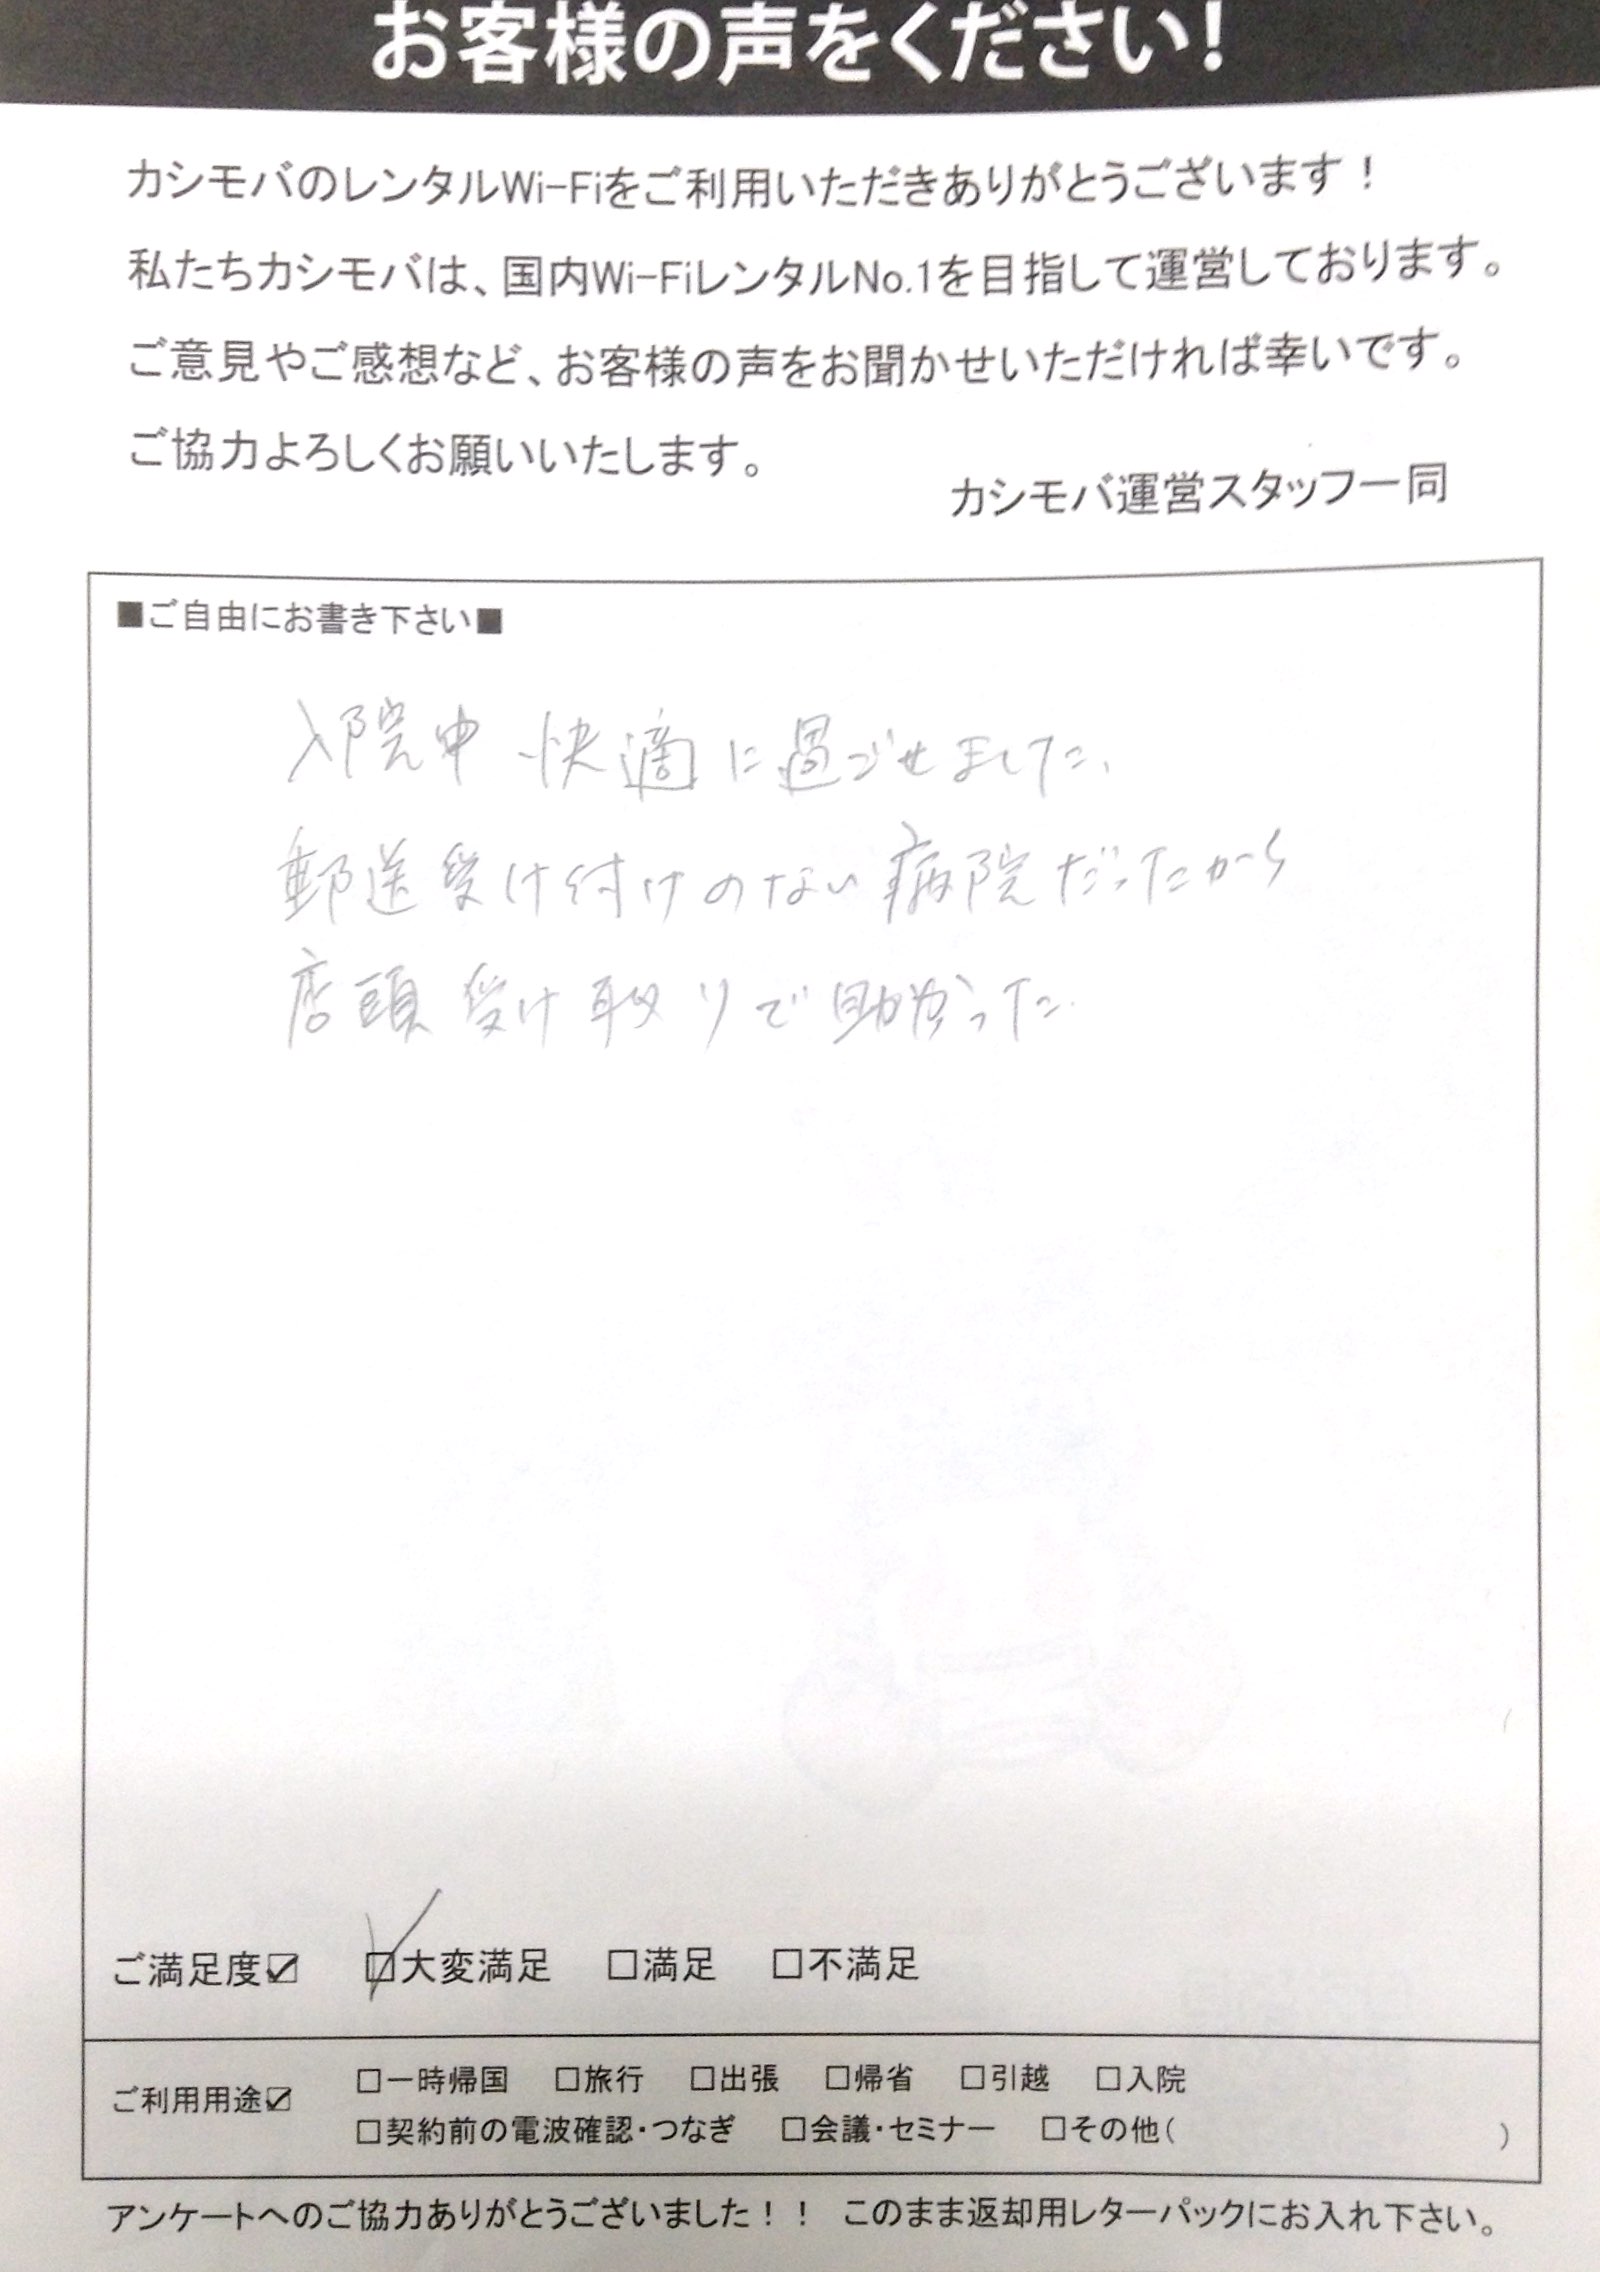 お客様の声をください!
カシモバのレンタルWi-Fiをご利用いただきありがとうございます！
私たちカシモバは、国内Wi-FiレンタルNo.1を目指して運営しております。
ご意見やご感想など、お客様の声をお聞かせいただければ幸いです。
ご協力よろしくお願いいたします。
カシモバ運営スタッフ一同
■ご自由にお書き下さい■
入院中 快適に過ごせました、
郵送受け付けのない病院だったから
店頭受け取りで助かった
ご満足度☑ ☑大変満足 □満足 □不満足
ご利用用途☑ □一時帰国 □旅行 □出張 □帰省 □引越 □入院
□契約前の電波確認・つなぎ □会議・セミナー □その他( )
アンケートへのご協力ありがとうございました！！ このまま返却用レターパックにお入れ下さい。